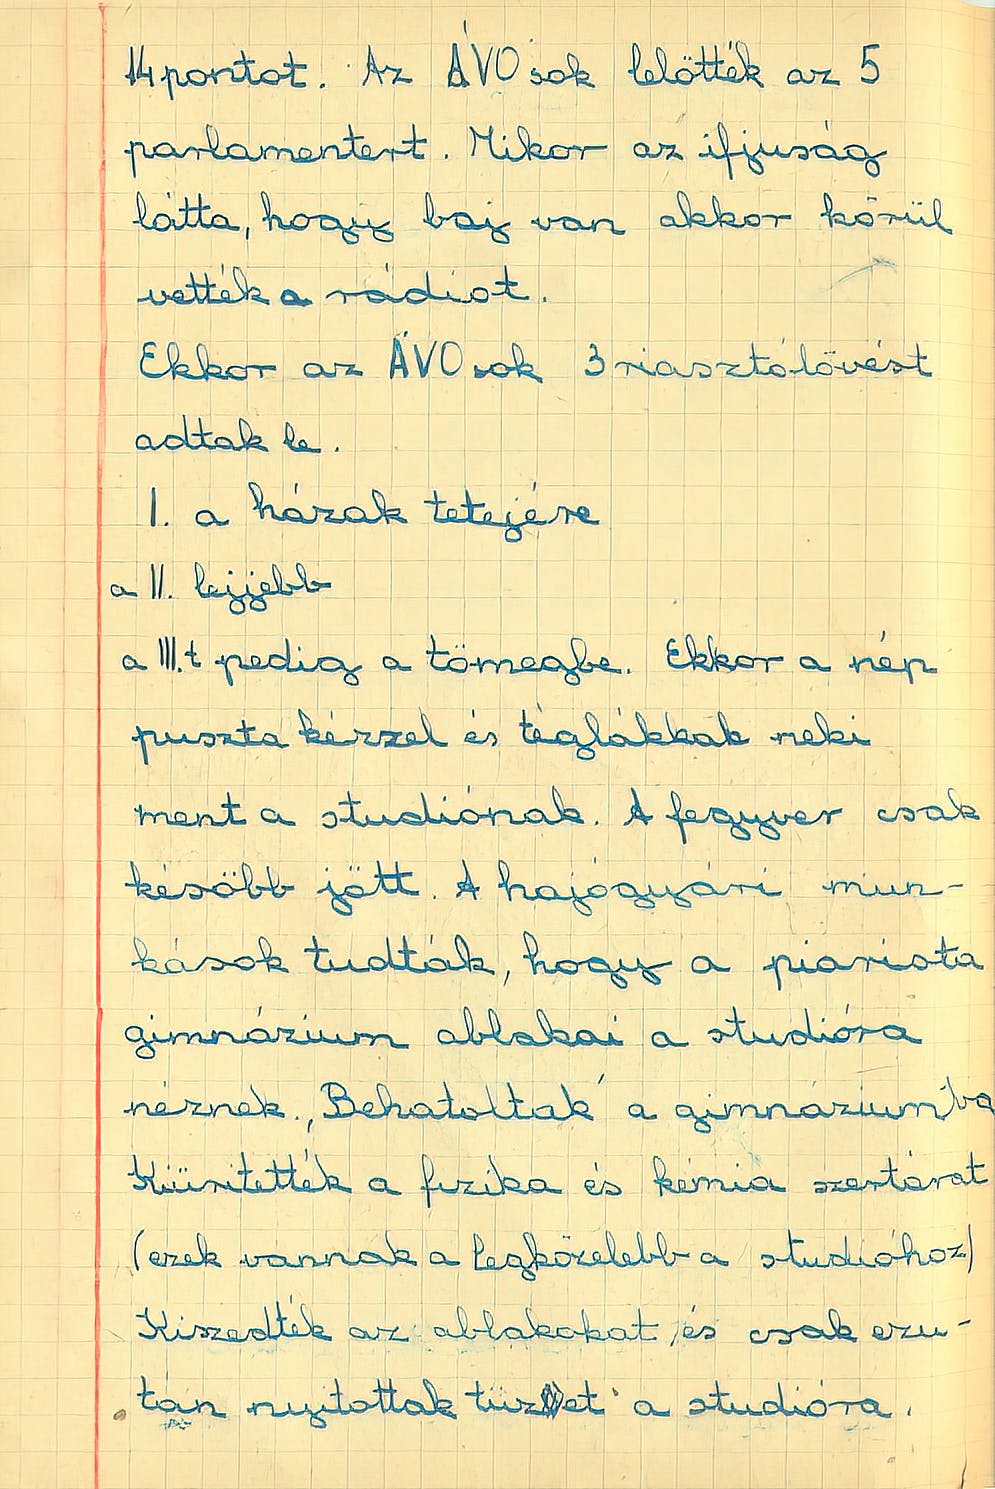 14 pontot. Az ÁVO sok lelőtték az 5
parlamentert. Mikor az ifjuság
látta, hogy baj van akkor körül
vették a rádiot.
Ekkor az ÁVO sok 3 riasztólövést
adtak le.
I. a házak tetejére
a II. lejjebb
a III.t pedig a tömegbe. Ekkor a nép
puszta kézzel és téglákkak neki
ment a studiónak. A fegyver csak
később jött. A hajógyári mun-
kások tudták, hogy a piarista
gimnázium ablakai a studióra
néznek., Behatoltak a gimnáziumba
Kiürítették a fizika és kémia szertárat
(ezek vannak a legközelebb a studióhoz)
Kiszedték az ablakokat, és csak ezu-
tán nyitottak tüzet a studióra.